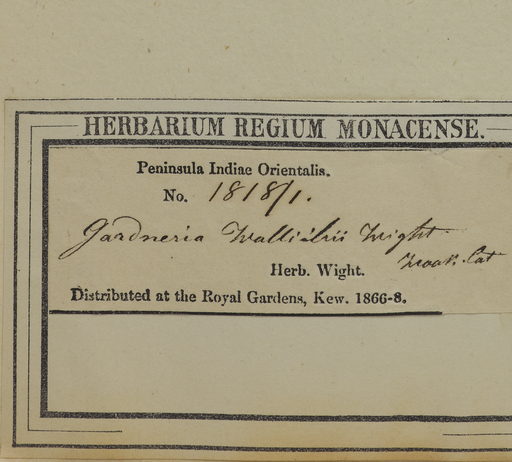 HERBARIUM REGIUM MONACENSE.
Peninsula Indiae Orientalis.
No. 1818/1.
Gardneria Wallichii Wight
Herb. Wight.
Distributed at the Royal Gardens, Kew. 1866-8.